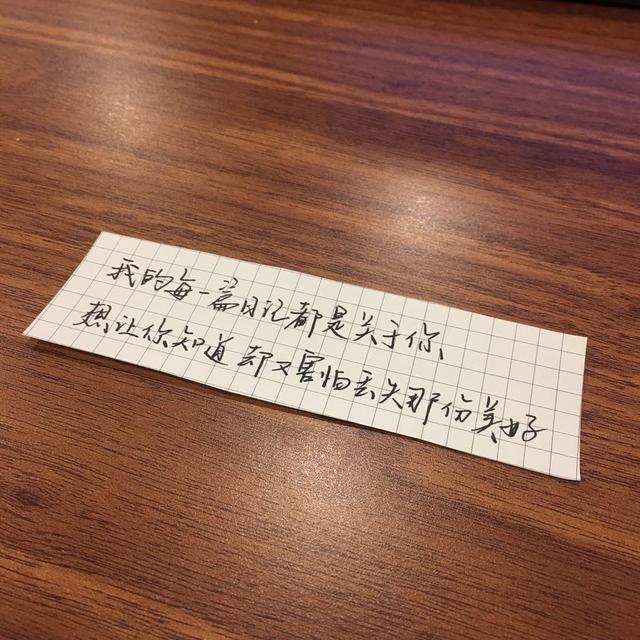 我的每一篇日记都是关于你、
想让你知道 却又害怕丢失那份美好